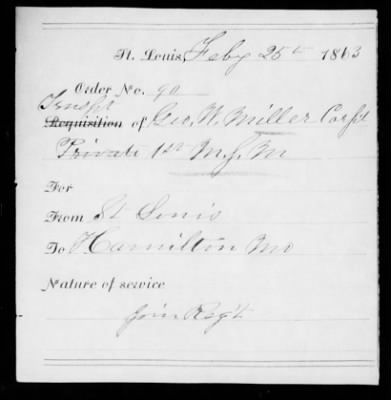 St. Louis, Feby 25th 1863
Order No. 90
Transpt
Requisition of Geo. W. Miller Corpl
Private 1st M.S.M
For
From St Louis
To Hamilton Mo
Nature of service
Join Regt